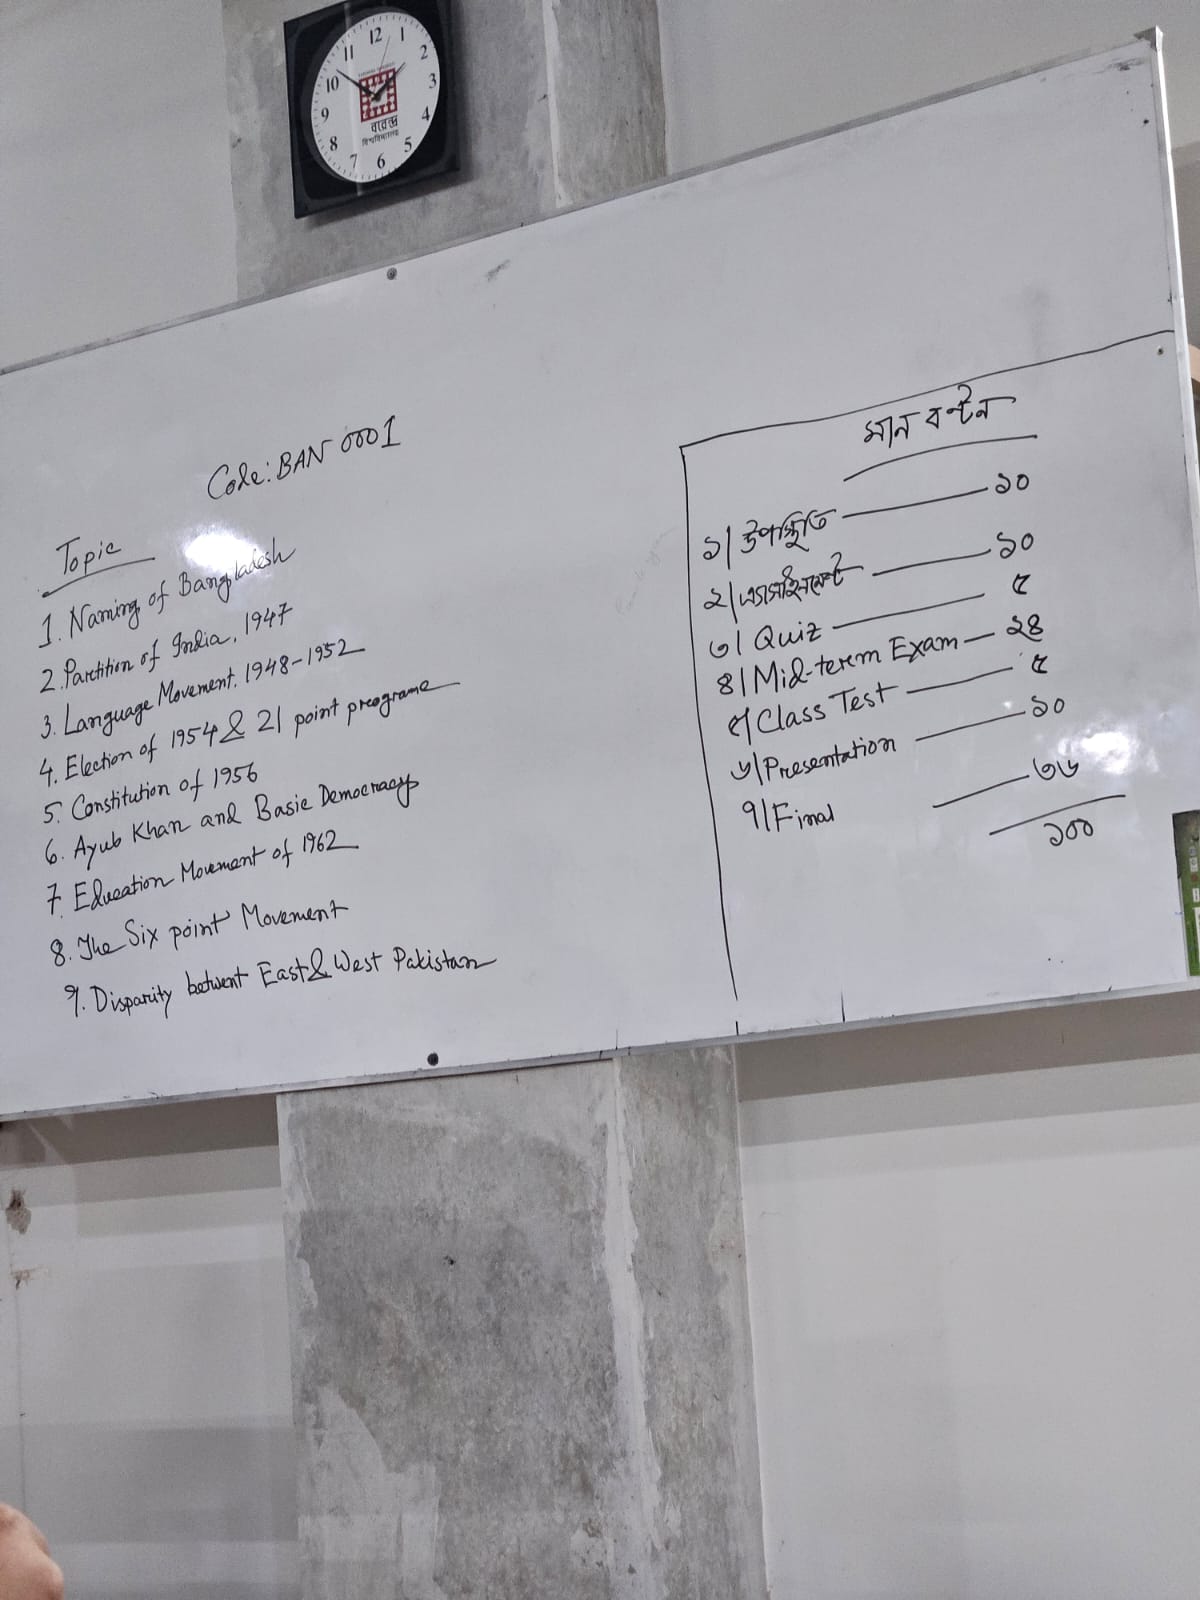 12
1
2
3
4
5
6
7
8
9
10
11
বরেন্দ্র
বিশ্ববিদ্যালয়
Code: BAN 0001
Topic
1. Naming of Bangladesh
2. Partition of India, 1947
3. Language Movement. 1948-1952
4. Election of 1954 & 21 point programe
5. Constitution of 1956
6. Ayub Khan and Basic Democracy
7. Education Movement of 1962
8. The Six point Movement
9. Disparity betwent East & West Pakistan
মান বন্টন
১। উপস্থিতি — ১০
২। এসাইনমেন্ট — ১০
৩। Quiz — ৫
৪। Mid-term Exam — ২৪
৫। Class Test — ৫
৬। Presentation — ১০
৭। Final — ৩৬
১০০